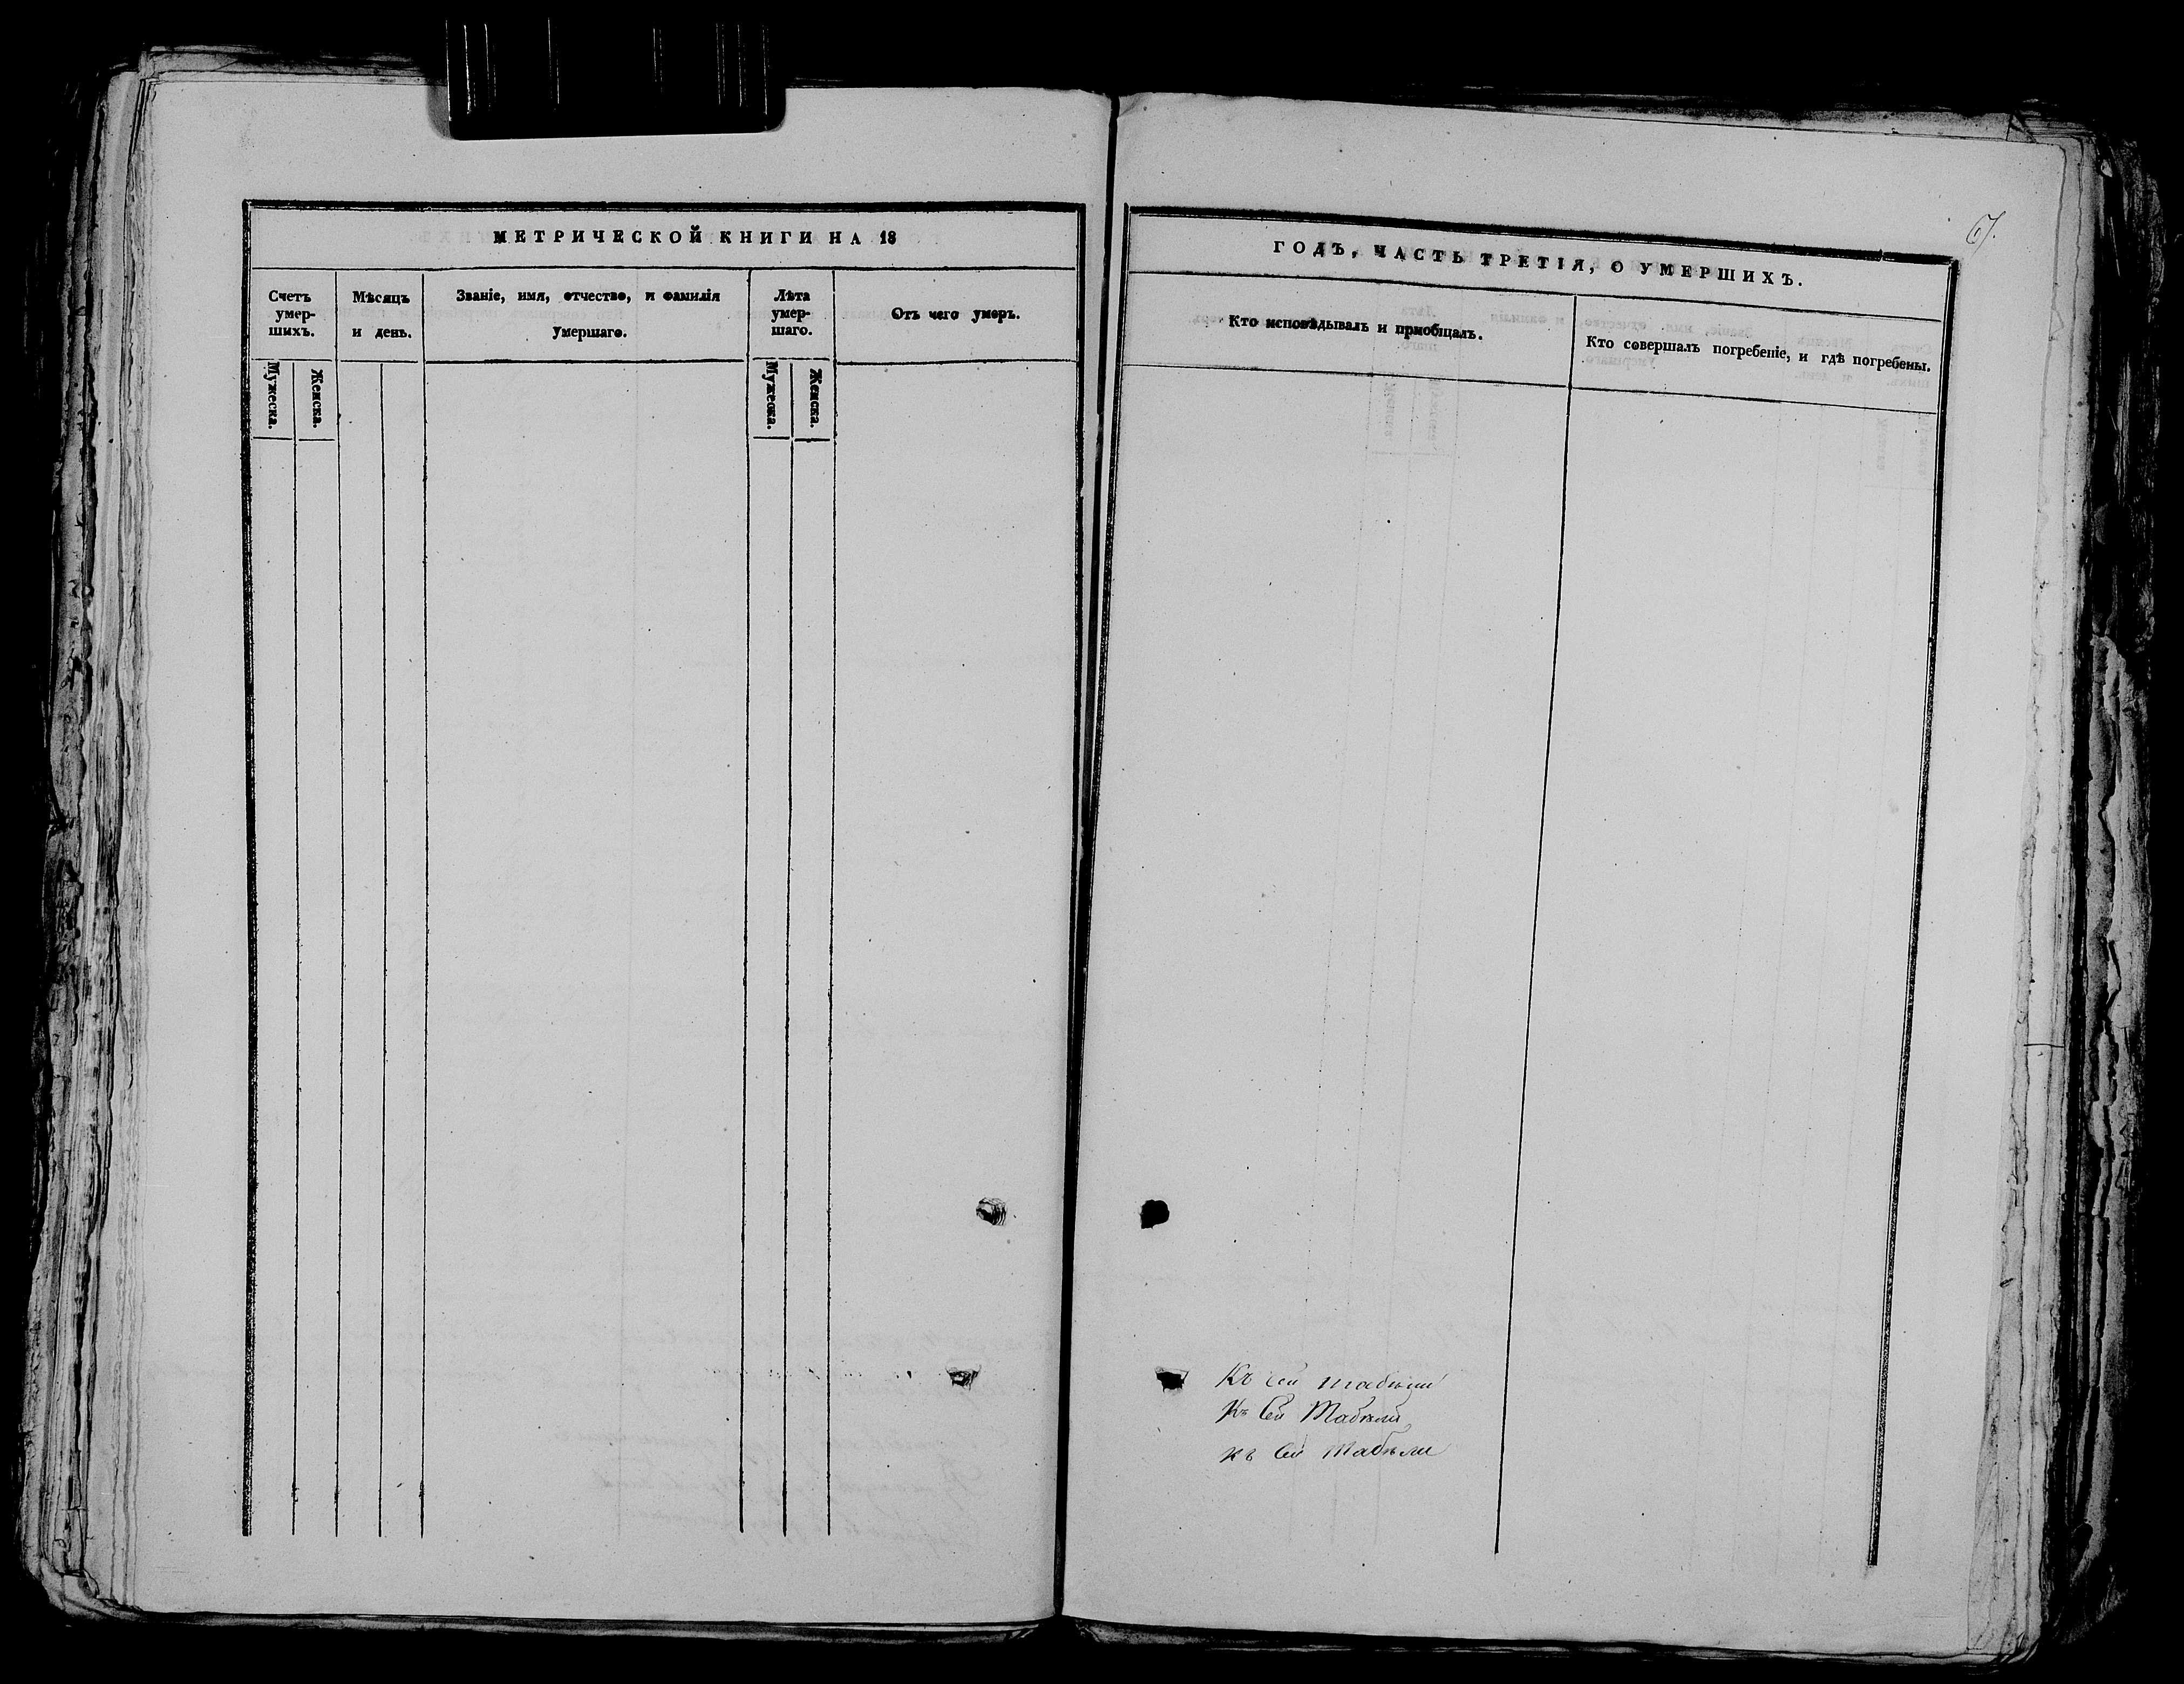 МЕТРИЧЕСКОЙ КНИГИ НА 18
Счетъ
умер-
шихъ.
Мужеска.
Женска.
Мѣсяцъ
и день.
Званіе, имя, отчество, и фамилія
умершаго.
Лѣта
умер-
шаго.
Мужеска.
Женска.
Отъ чего умеръ.
67.
ГОДЪ, ЧАСТЬ ТРЕТІЯ, О УМЕРШИХЪ.
Кто исповѣдывалъ и пріобщалъ.
Кто совершалъ погребеніе, и гдѣ погребены.
Къ сей табели
Къ Сей Табели
къ Сей Табѣли